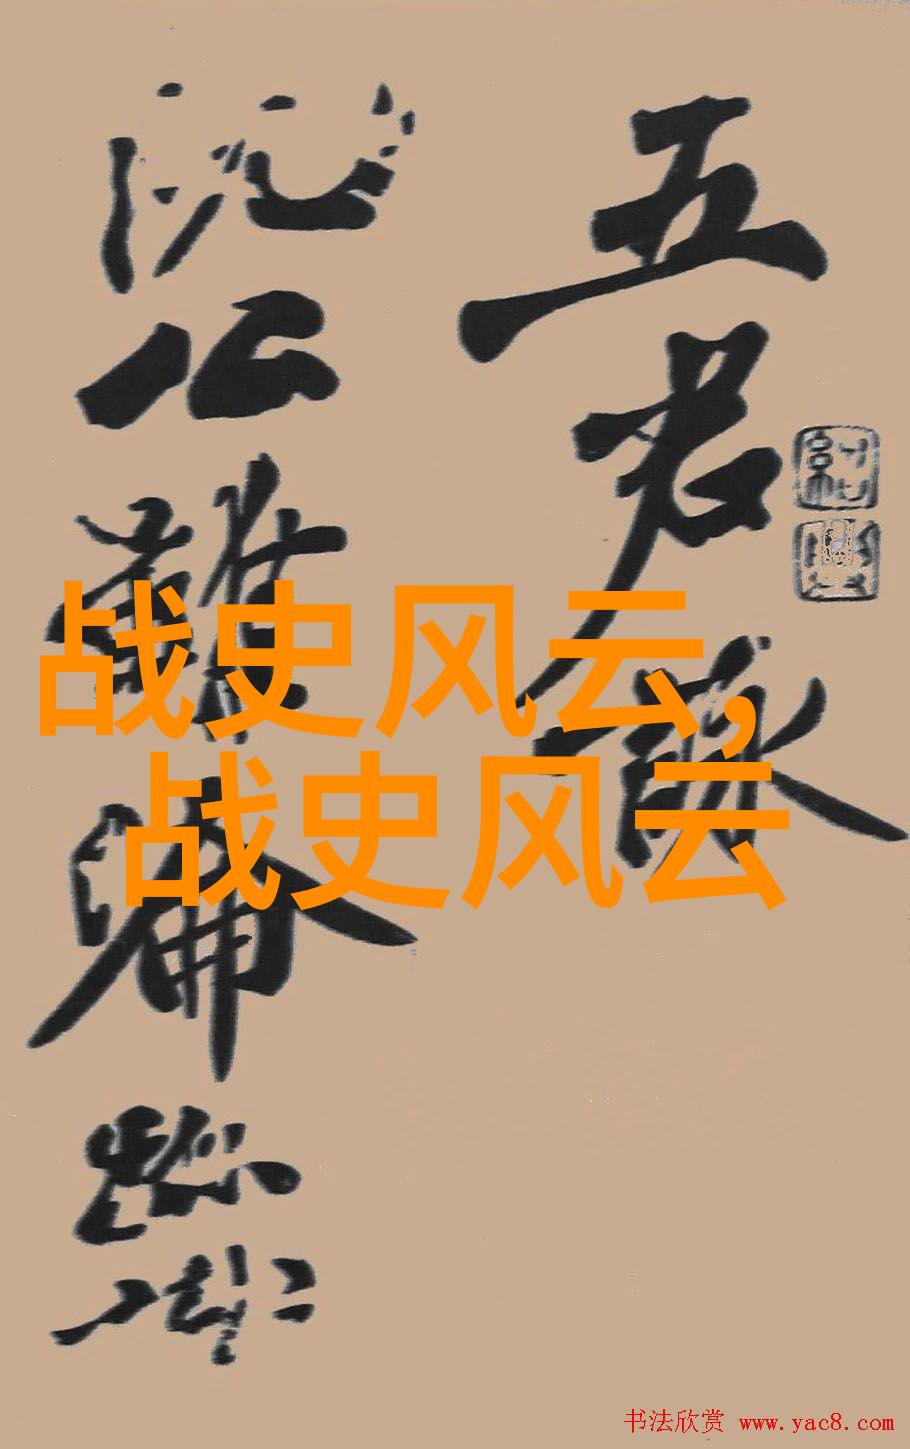 五君詠
阮公雖淪跡
战史风云,
战史风云
书法欣赏 www.yac8.com